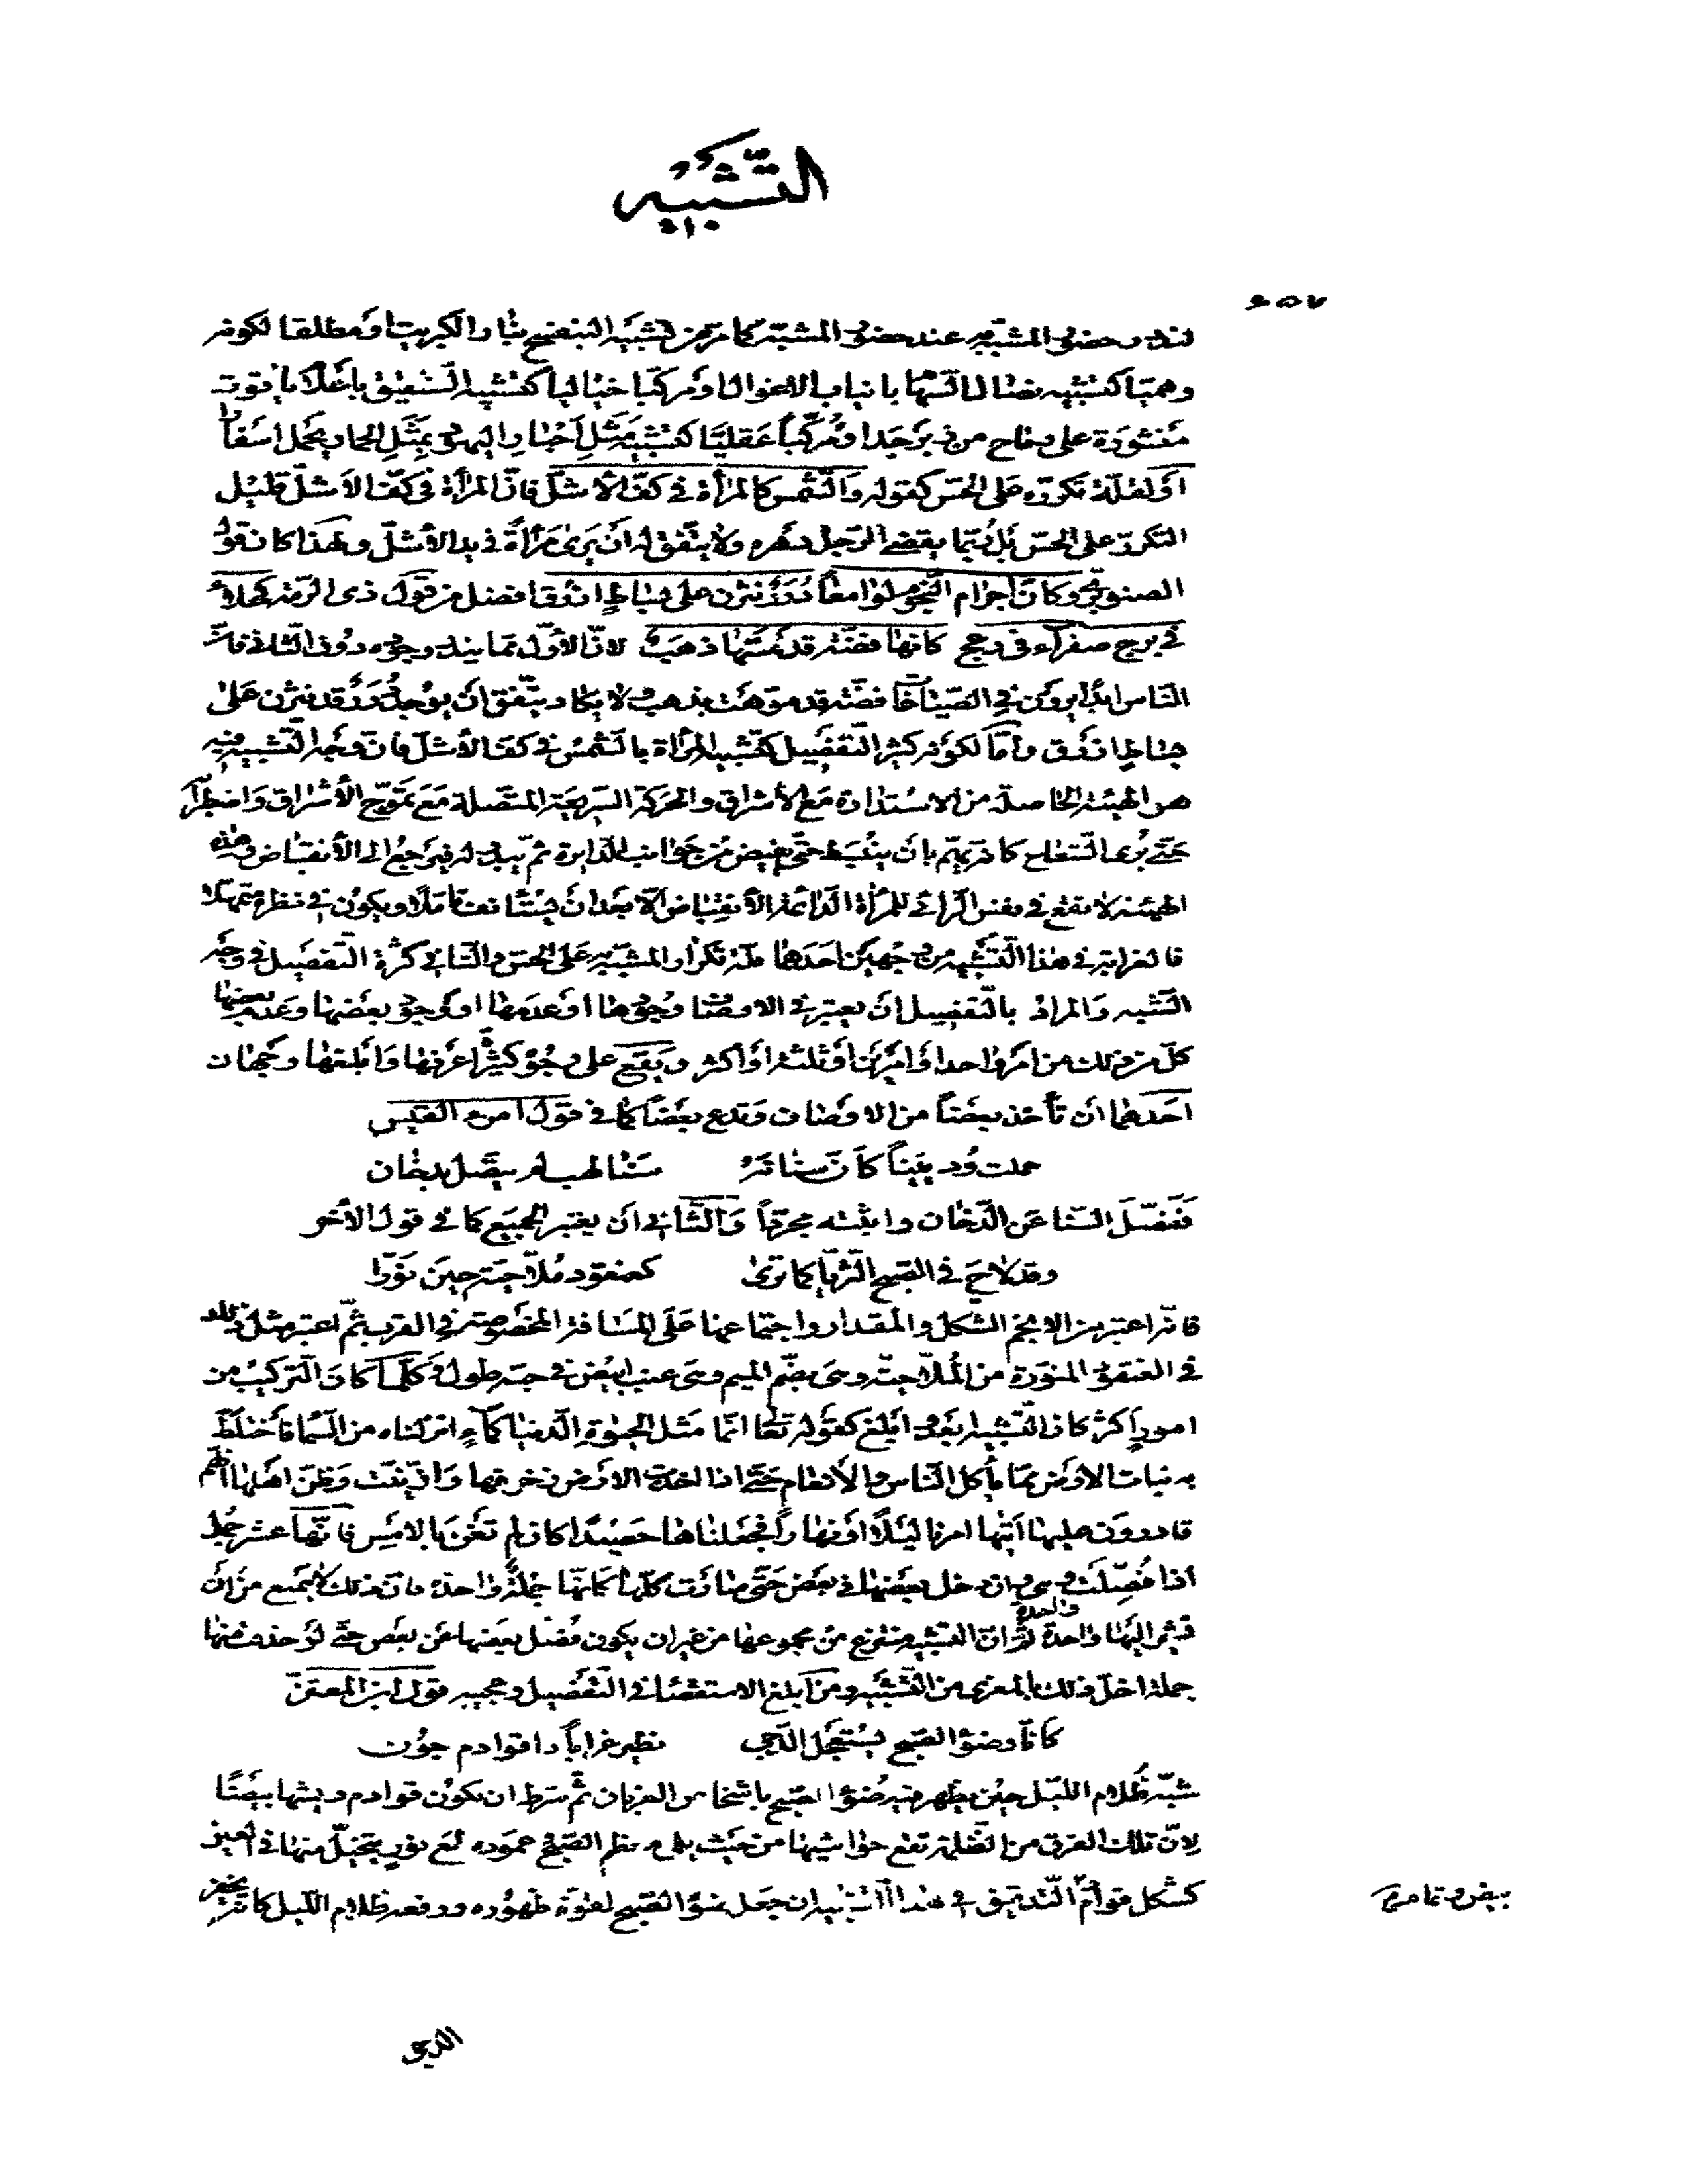 التَّشْبِيْه
لندور حضور المشبّه به عند حضور المشبّه كما مرّ من تشبيه البنفسج بنار الكبريت او مطلقا لكونه
وهميّا كتشبيه نصال السّهام بانياب الاغوال او مركّبا خياليا كتشبيه الشقيق باعلام ياقوت
منشورة على رماح من زبرجد او مركّباً عقليّا كتشبيه مثل احبار اليهود بمثل الحمار يحمل اسفارا
اَوْ لقلّة تكرّره على الحسّ كقوله والشّمس كالمرأة في كفّ الأشلّ فانّ المرأة في كفّ الاشلّ قليل
التكرّر على الحسّ بل ربّما يقضى الرّجل دهره ولا يتّفق له اَن يرى مرأةً في يد الأشلّ ولهذا كان قول
الصنوبرىّ وكانّ اجرام النّجوم لوامعاً دُرَرٌ نثرن على بساطٍ ازرق افضل من قول ذى الرّمّه كحلاءُ
في برج صفراء فى دعج كانّها فضّة قد مسّها ذهب لانّ الأوّل ممّا يندر وجوده دون الثّانى فانّ
النّاس ابدا يرون في الصّياغا فضّة قد موّهت بذهب ولا يكاد يتّفق ان يوجد دُرَرٌ قد نثرن عَلى
بساطٍ ازرق وامّا لكونه كثير التّفصيل كتشبيه المرأة بالشّمس في كفّ الأشلّ فانّ وجه التّشبيه فيه
هو الهيئة الحاصلة من الاستدارة مَعَ الأشراق والحركة السّريعة المتّصلة مَعَ تموّج الأشراق واضطرابه
حتّى يُرى الشّعاع كانّه يهمّ بان ينبسط حتّى يفيض من جوانب الدّايرة ثمّ يبدو له فيرجع الى الأنقباض وهذه
الهيئة لا تقع في نفس الرّائى للمرأة الدّائمة الأنقباض الّا بعد ان يستأنف تامّلًا ويكون في نظره متمهّلا
فالغرابة في هذا التّشبيه من جهين احدهما قلّة تكرار المشبّه به على الحسّ والثانى كثرة التّفصيل في وجه
الشّبه والمراد بالتّفصيل ان يعتبر في الاوصاف وجودها او عدمها او وجود بعضها وعدم بعضها
كلّ من ذلك من امر واحد او امرين او ثلثة او أكثر ويقع على وجوه كثيرة اعرفها وابلغها وجهان
احدهما ان تأخذ بعضاً من الاوصاف وتدع بعضاً كما في قول امرء القيس
حملت رُدينيّاً كاَنّ سنانه سنا لهب لم يتّصل بدخان
ففصّل السّنا عن الدّخان واثبته مجرّداً والثّانى ان يعتبر الجميع كما في قول الأخر
وقد لاح في الصّبح الثّريّا كما ترى كعنقود مُلّاحيّة حين نوّرا
فانّه اعتبر من الانجم الشكل والمقدار واجتماعها على المسافة المخصوصة في القرب ثمّ اعتبر مثل ذلك
في العنقود المنوّرة من المُلّاحيّة وهى بضمّ الميم وهى عنب ابيض في حبّه طول وكلّما كان التّركيب من
امورٍ اكثر كان التّشبيه ابعد وابلغ كقوله تعا انّما مثل الحيوة الدّنيا كماءٍ انزلناه من السّماء فاختلط
به نبات الارض ممّا يأكل النّاس والأنعام حتّى اذا اخذت الارض زخرفها وازّيّنت وظنّ اهلها انّهم
قادرون عليها اتيها امرنا ليلًا او نهاراً فجعلناها حصيدًا كان لم تغن بالامس فانّها عشر جمل
اذا فُصّلت وهى وان دخل بعضها في بعض حتّى صارت كلّها كانّها جملةٌ واحدة فانّ ذلك لا يمنع من اَن
تشير اليها واحدة واحدة ثمّ انّ التّشبيه منتزع من مجموعها من غير ان يكون فصل بعضها عن بعض حتّى لو حذف منها
جملة اخلّ ذلك بالمغزى من التّشبيه ومن ابلغ الاستقصاء في التّفصيل وعجيبه قول ابن المعتزّ
كانّا وضوؤ الصّبح يستعجل الدّجى نطير غراباً ذا قوادم جون
شبّه ظلام الليل حين يظهر فيه ضوؤ الصّبح باشخاص الغربان ثمّ شرط ان يكون قوادم ريشها بيضًا
لانّ تلك الفرق من الظّلمة تقع حواشيها من حيث يلى معظم الصّبح عموده لمع نورٍ يتخيّل منها في العين
كشكل قوادم بيض وتمام التّدقيق في هذا التّشبيه ان جعل ضوؤ الصّبح لقوّة ظهوره ودفعه ظلام اللّيل كانّه يحفز
بيض وتمام
الدّجى